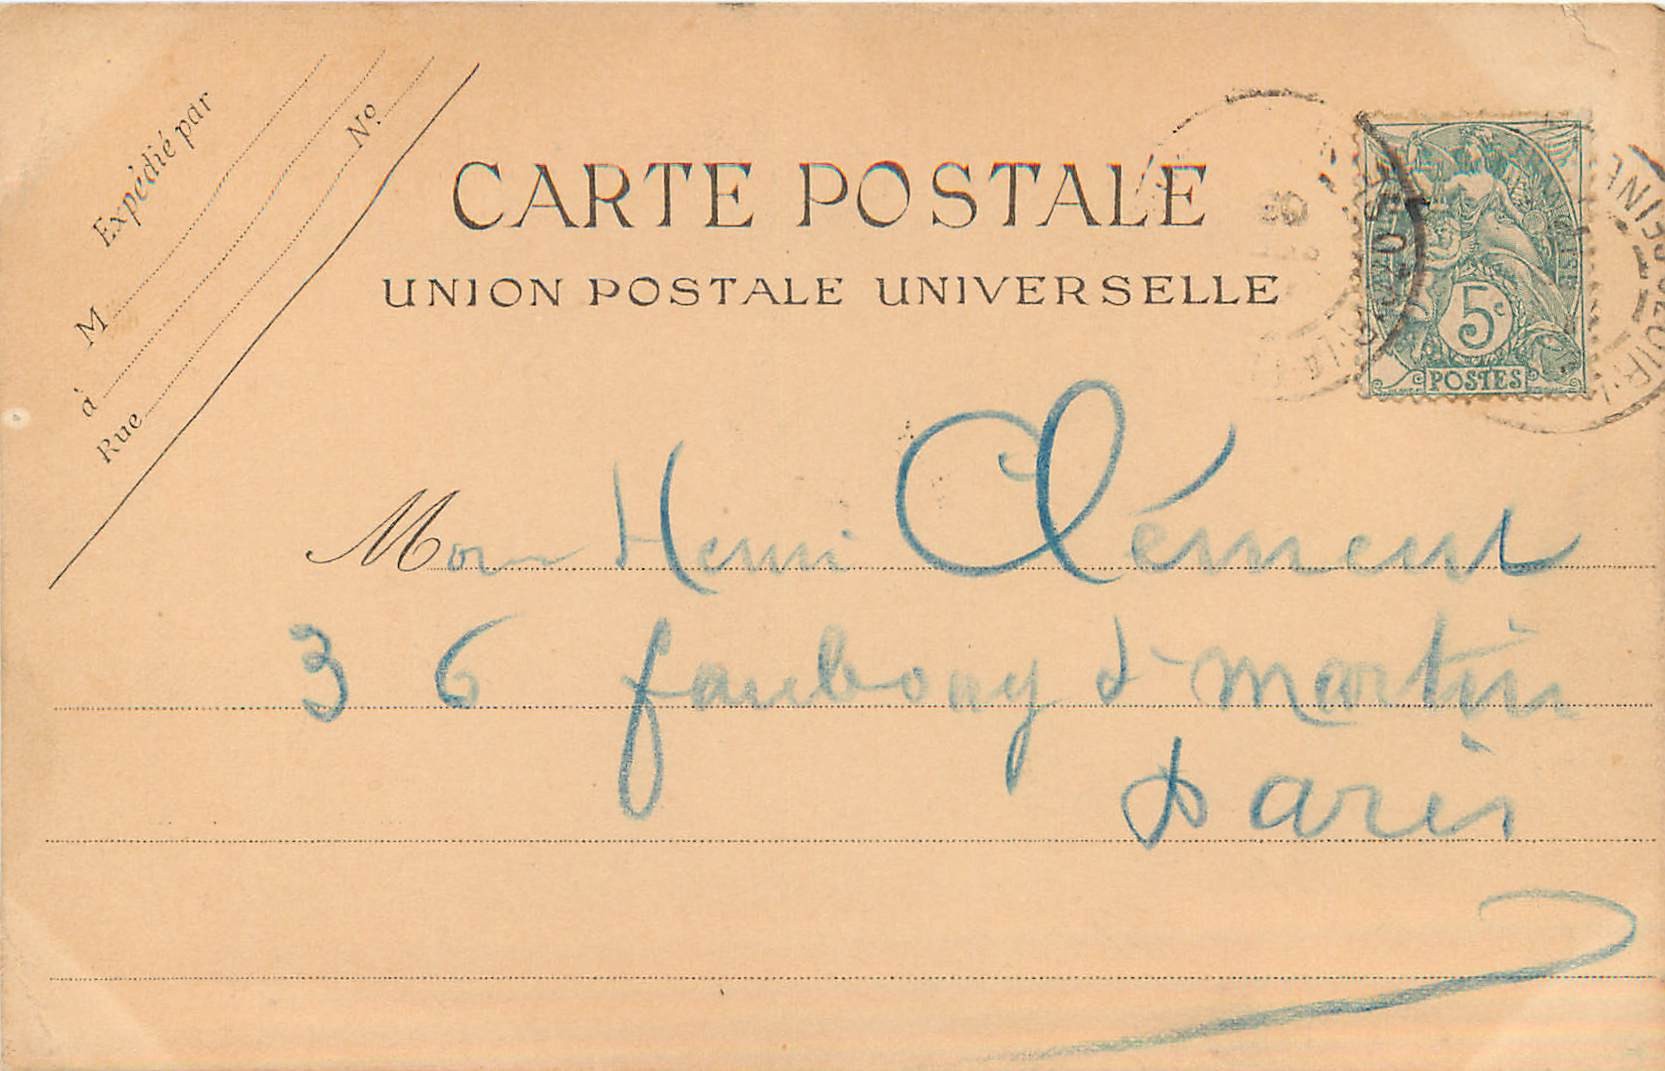 Expédié par
M
à
Rue
Nº
CARTE POSTALE
UNION POSTALE UNIVERSELLE
5c
POSTES
Mon Henri Clément
36 faubourg St Martin
Paris